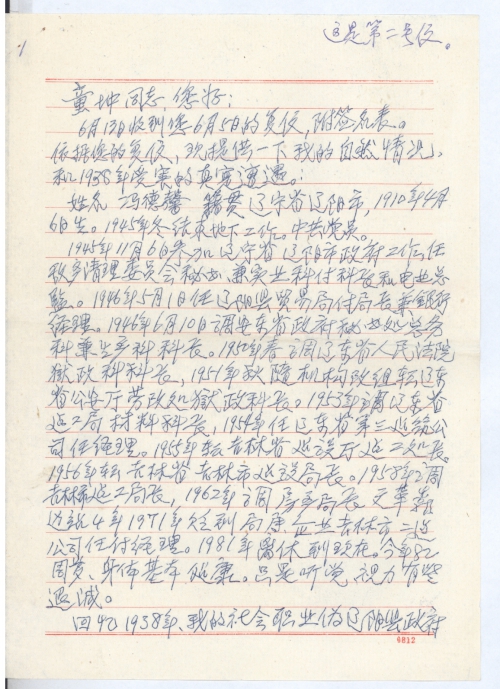 这是第二号信。
童坤同志，您好：
6月13日收到您6月5日的复信，附签名表。
依据您的复信，现提供一下我的自然情况，
和1938年受害的真实遭遇。：
姓名 冯德馨 籍贯 辽宁省辽阳市，1910年4月
6日生。1945年冬结束地下工作。中共党员。
1945年11月6日参加辽宁省辽阳市政府工作，任
敌产清理委员会秘书兼实业科付科长和电业总
监。1946年5月1日任辽阳县贸易局付局长兼银行
经理。1946年6月10日调安东省政府秘书处总务
科兼生产科科长。1950年春调辽东省人民法院
狱政科科长，1951年秋随机构改组转辽东
省公安厅劳改处狱政科长。1953年调辽东省
建工局材料科长，1954年任辽东省第三建筑公
司任经理。1955年转吉林省建设厅建工处长。
1956年转吉林省吉林市建设局长。1958年调
吉林市建工局长，1962年调房产局长 文革靠
边站4年1971年
公司任付经理。1981年离休到现在。今年82
周岁、身体基本健康。只是听觉、视力有些
退减。
回忆1938年、我的社会职业伪辽阳县政府
6812